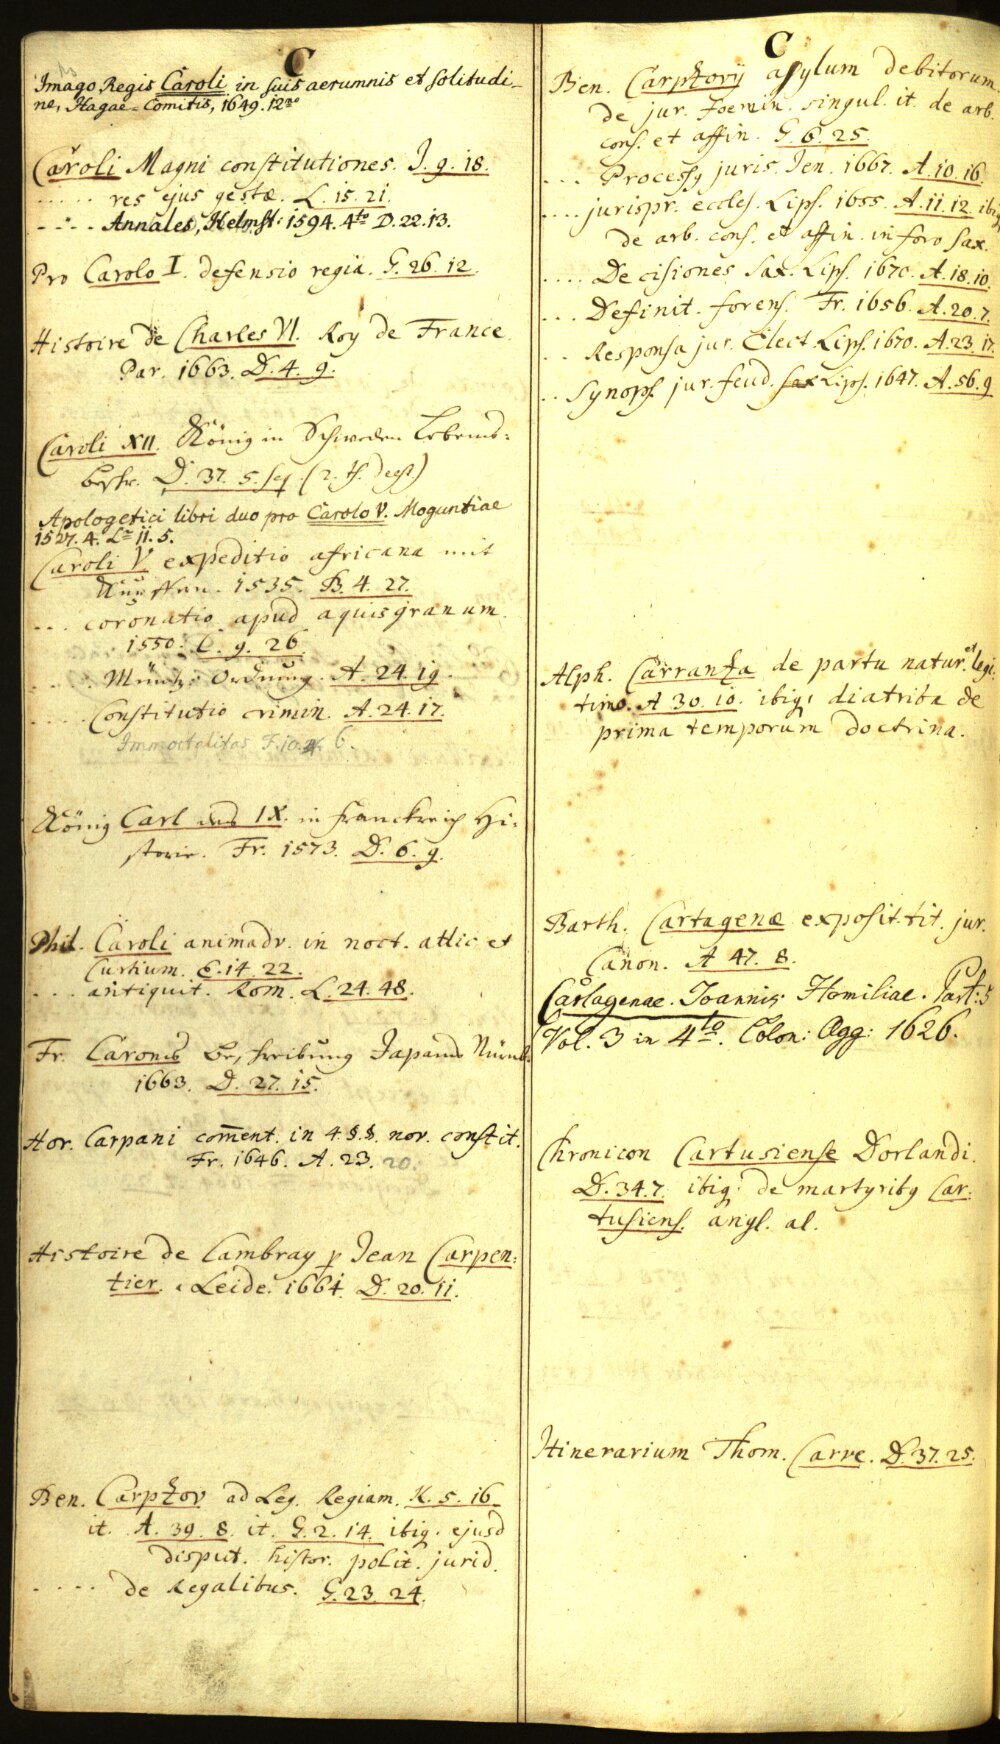 C
Imago Regis Caroli in suis aerumnis et solitudi-
ne, Hagae-Comitis, 1649. 12mo
Caroli Magni constitutiones. I. 9. 18.
..... res ejus gestæ. L. 15. 21.
.... Annales, Helmst. 1594. 4to D. 22. 13.
Pro Carolo I. defensio regia. G. 26. 12.
Histoire de Charles VI. Roy de France
Par. 1663. D. 4. 9.
Caroli XII. König in Schweden Lebens-
beschr. D. 37. 5. seq. (2. th. deest)
Apologetici libri duo pro Carolo V. Moguntiae
1527. 4. L 11. 5.
Caroli V. expeditio africana mit
Kupffern. 1535. B. 4. 27.
... coronatio apud aquisgranum.
1550. C. 9. 26.
.... Müntz-Ordnung. A. 24. 19.
.... Constitutio crimin. A. 24. 17.
Immortalitas F. 10. 6.
König Carl des IX. in Franckreich Hi-
storie. Fr. 1573. D. 6. 9.
Phil. Caroli animadv. in noct. attic. et
Curtium. C. 14. 22.
... antiquit. Rom. L. 24. 48.
Fr. Carons beschreibung Japans Nürnb.
1663. D. 27. 15.
Hor. Carpani comment. in 4. §.§. nov. constit.
Fr. 1646. A. 23. 20.
Histoire de Cambray p Jean Carpen-
tier. a Leide. 1664. D. 20. 11.
Ben. Carpzov ad Leg. Regiam. K. 5. 16
it. A. 39. 8. it. G. 2. 14. ibiq. ejusd
disput. histor. polit. jurid.
.... de Regalibus. G. 23. 24.
C
Ben. Carpzovij asylum debitorum.
de jur. Foemin. singul. it. de arb.
cons. et affin. G. 6. 25.
... Processq juris. Jen. 1667. A. 10. 16.
.... jurispr. eccles. Lips. 1655. A. 11. 12. ibiq
de arb. cons. et affin. in foro Sax.
.... Decisiones Sax. Lips. 1670. A. 18. 10.
... Definit. forens. Fr. 1656. A. 20. 7.
.. Responsa jur. Elect. Lips. 1670. A. 23. 17.
.. Synops. jur. feud. Sax Lips. 1647. A. 56. 9.
Alph. Carranza de partu natur. et legi-
timo. A 30. 10. ibiq; diatriba de
prima temporum doctrina.
Barth. Cartagenæ exposit. tit. jur.
Canon. A 47. 8.
Cartagenae. Joannis. Homiliae. Part: 5
Vol. 3 in 4to. Colon: Agg: 1626.
Chronicon Cartusiense Dorlandi.
D. 34. 7. ibiq; de martyribq Car-
tusiens. angl. al.
Itinerarium Thom. Carve. D. 37. 25.